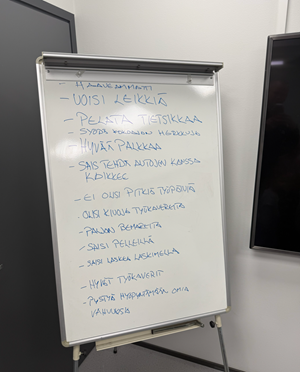 - HAAVEAMMATTI
- VOISI LEIKKIÄ
- PELATA TIETSIKKAA
- SYÖDÄ HERKKUJA
- HYVÄÄ PALKKAA
- SAIS TEHDÄ AUTOJEN KANSSA
KAIKKEE
- EI OLISI PITKIÄ TYÖPÄIVIÄ
- OLISI KIVOJA TYÖKAVEREITA
- PALJON BEMAREITA
- SAISI PELLEILLÄ
- SAISI LASKEA LASKIMELLA
- HYVÄT TYÖKAVERIT
- PYSTYÄ HYÖDYNTÄMÄÄN OMIA
VAHVUUKSIA